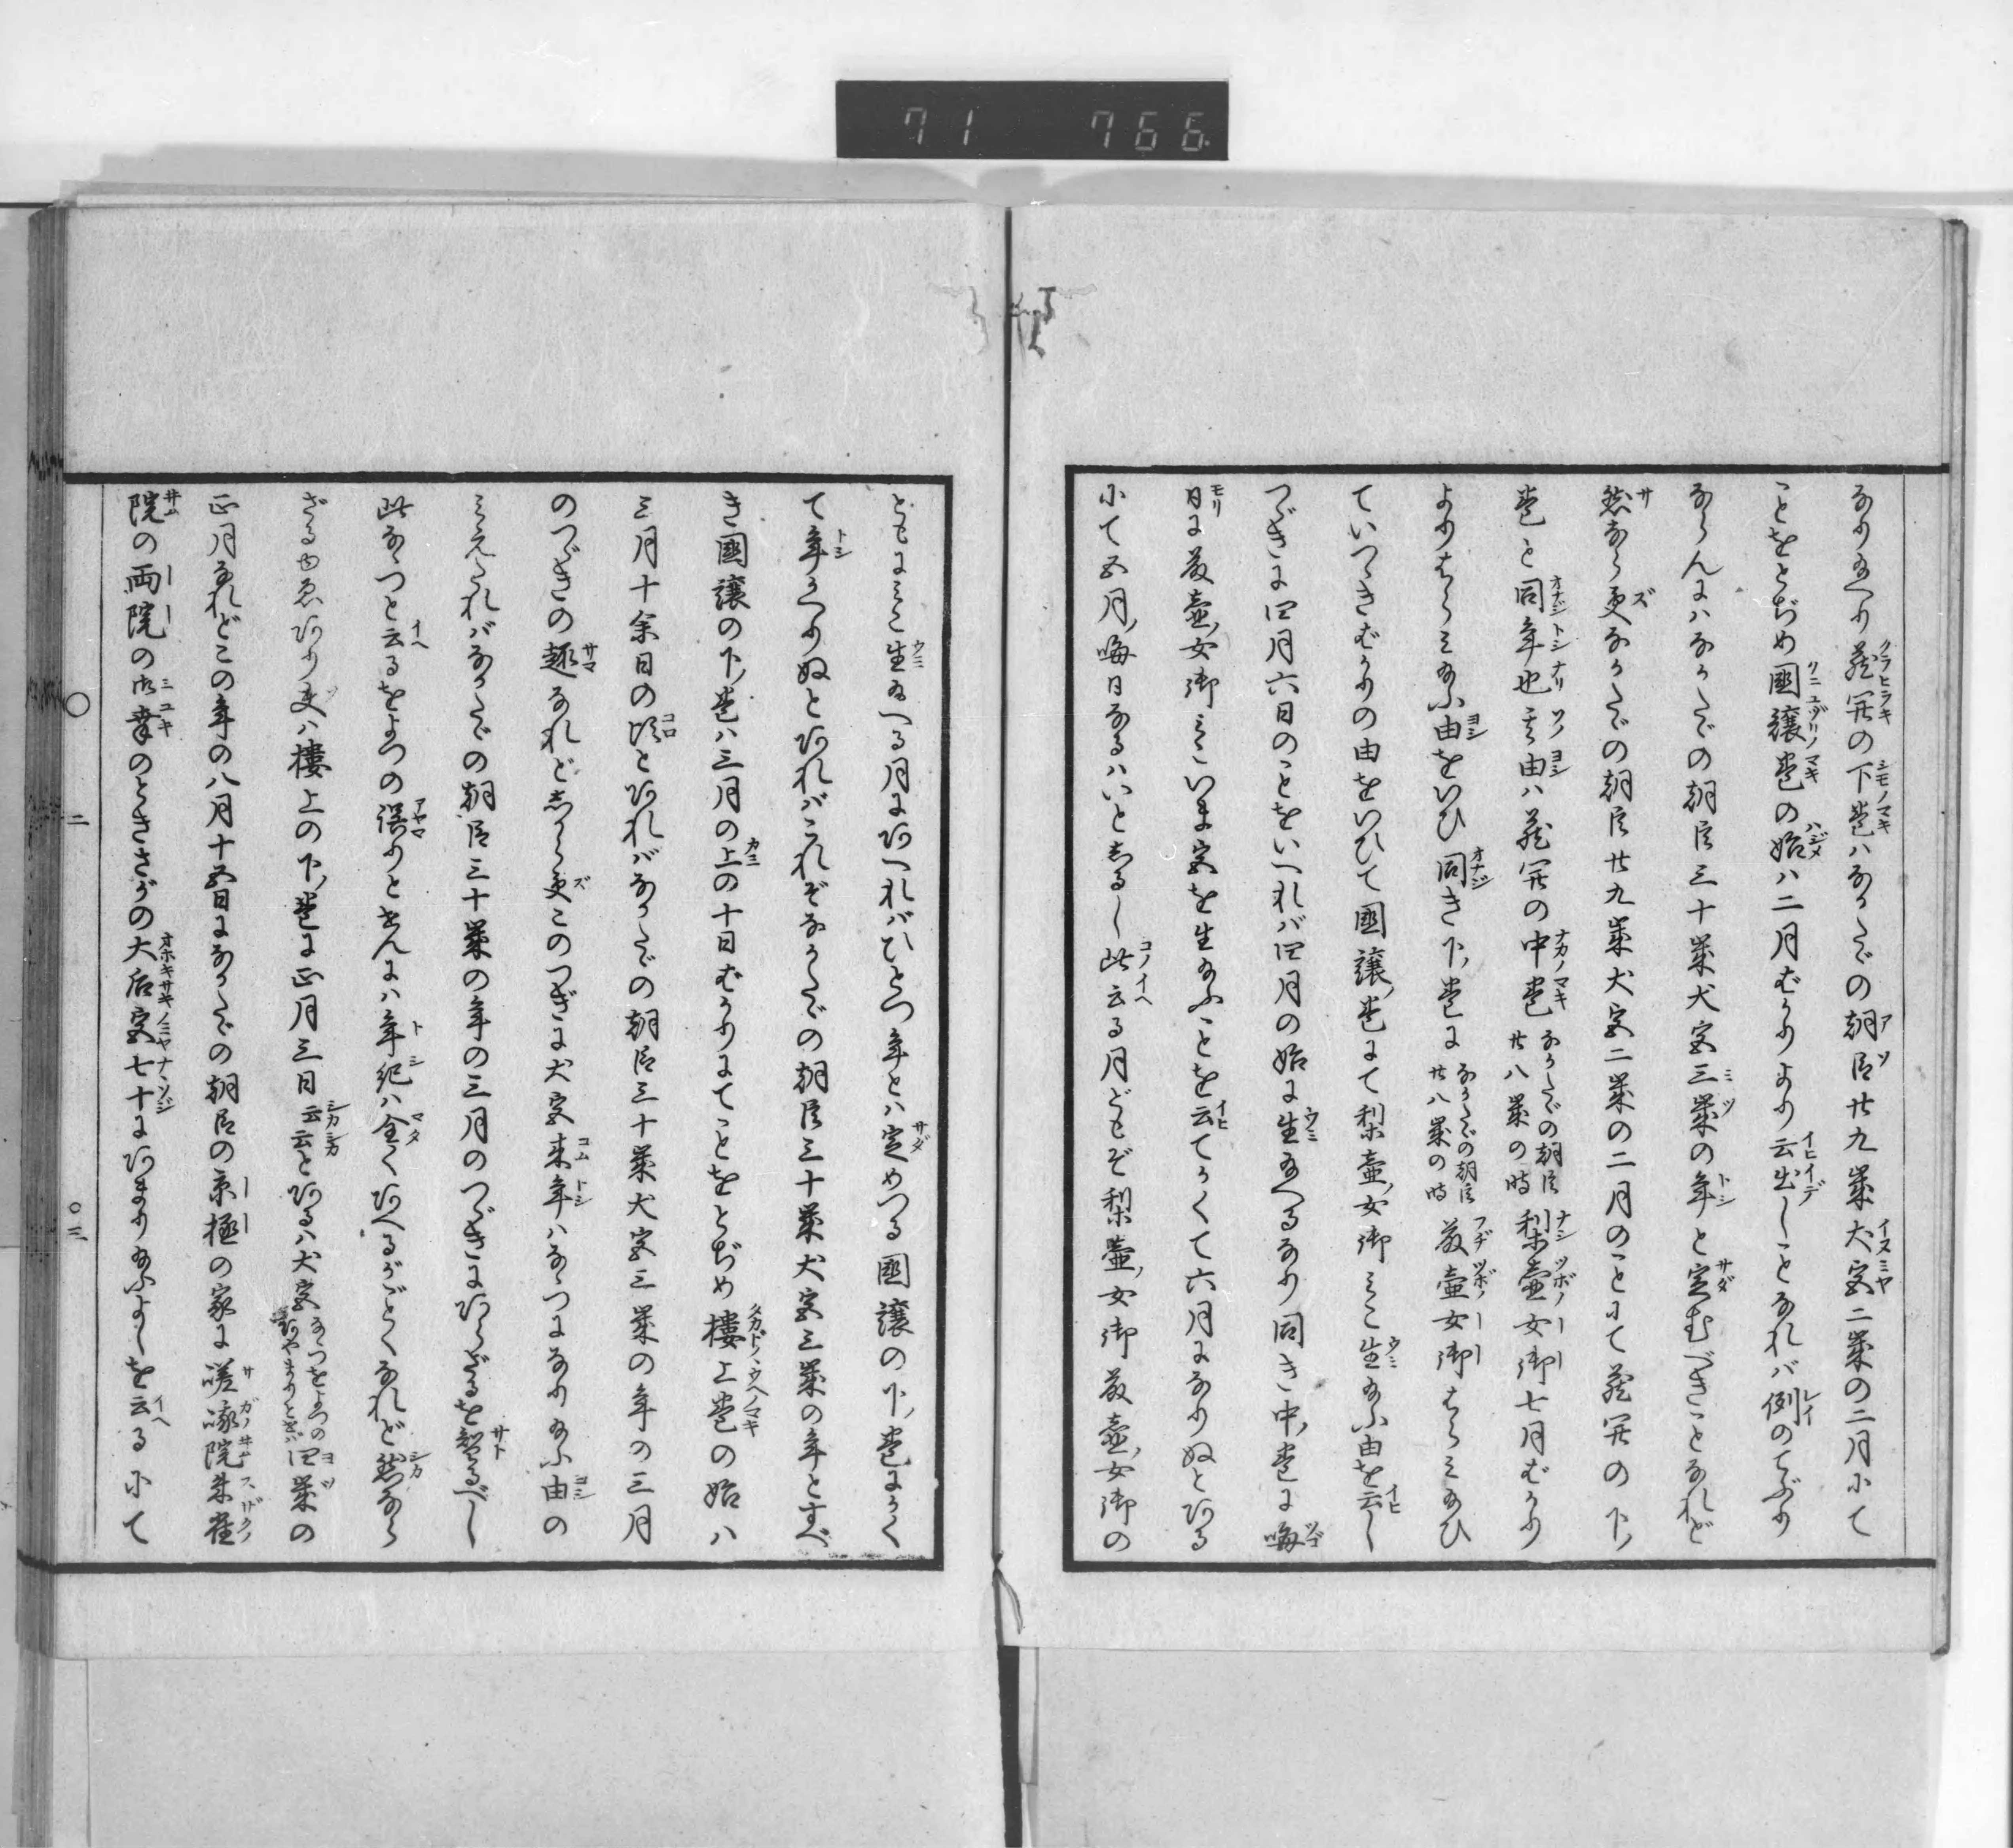 71 766
なり給へり蔵開の下巻ハなかたゞの朝臣廿九歳犬宮二歳の二月にて
ことをとぢめ國譲巻の始ハ二月むかりより云出しことなれバ例のてぶり
ならんにハなかたゞの朝臣三十歳犬宮三歳の年と定むべきことなれど
然なら更なかたゞの朝臣廿九歳犬宮二歳の二月のことにて蔵開の下
巻と同年也其由ハ蔵開の中巻なかたゞの朝臣廿八歳の時梨壷女御七月むかり
よりはらミ給ふ由をいひ同き下巻になかたゞの朝臣廿八歳の時藤壷女御はらミ給ひ
ていつきむかりの由をいひて國譲巻にて梨壷女御ミこ生給ふ由を云し
つゞきに四月六日のことをいへれバ四月の始に生給へるなり同き中巻に晦
日に藤壷女御ミこいま宮を生給ふことを云てかくて六月になりぬとある
にて五月晦日なるハいとしるし此云る月どもぞ梨壷女御藤壷女御の
ともにミこ生給へる月にあへれバひとつ年とハ定めつる國譲の下巻にかく
て年かへりぬとあれバこれぞなかたゞの朝臣三十歳犬宮三歳の年とすべ
き國譲の下巻ハ三月の上の十日むかりにてことをとぢめ樓上巻の始ハ
三月十余日の比とあれバなかたゞの朝臣三十歳犬宮三歳の年の三月
のつゞきの趣なれどしら更このつぎに犬宮来年ハなゝつになり給ふ由の
ミえたれバなかたゞの朝臣三十歳の年の三月のつゞきにあらざるを智るべし
此なゝつと云るをよつの誤りとせんにハ年紀ハ全くあへるがごとくなれど然なら
ざるゆゑあり更ハ樓上の下巻に正月三日云云とあるハ犬宮なゝつをよつのあやまりとせバ四歳の
正月なれどこの年の八月十五日になかたゞの朝臣の京極の家に嵯峨院朱雀
院の両院の御幸のときさがの大后宮七十にあまり給ふよしを云るにて
二